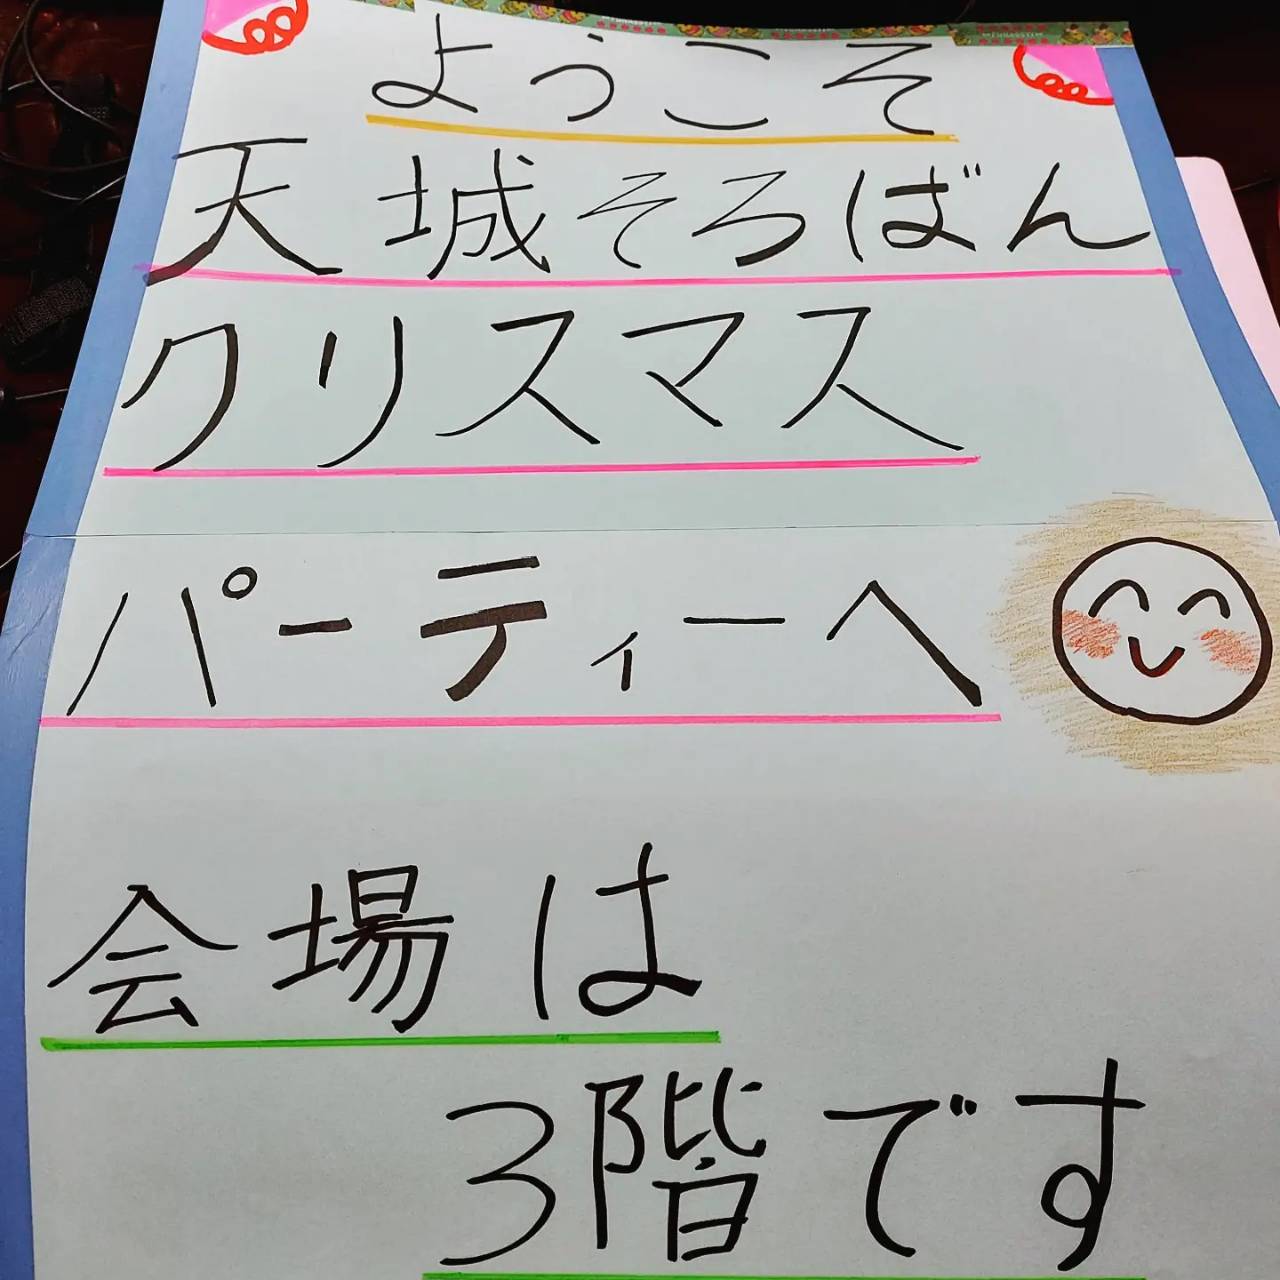 ようこそ
天城そろばん
クリスマス
パーティーへ
会場は
3階です